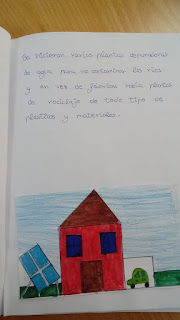 Se hicieron varias plantas depuradoras
de agua para no contaminar los ríos
y en vez de fábricas había plantas
de reciclaje de todo tipo de
plásticos y materiales.